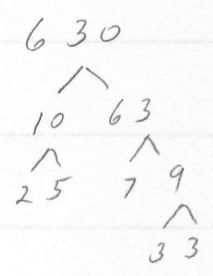 630
10 63
2 5 7 9
3 3